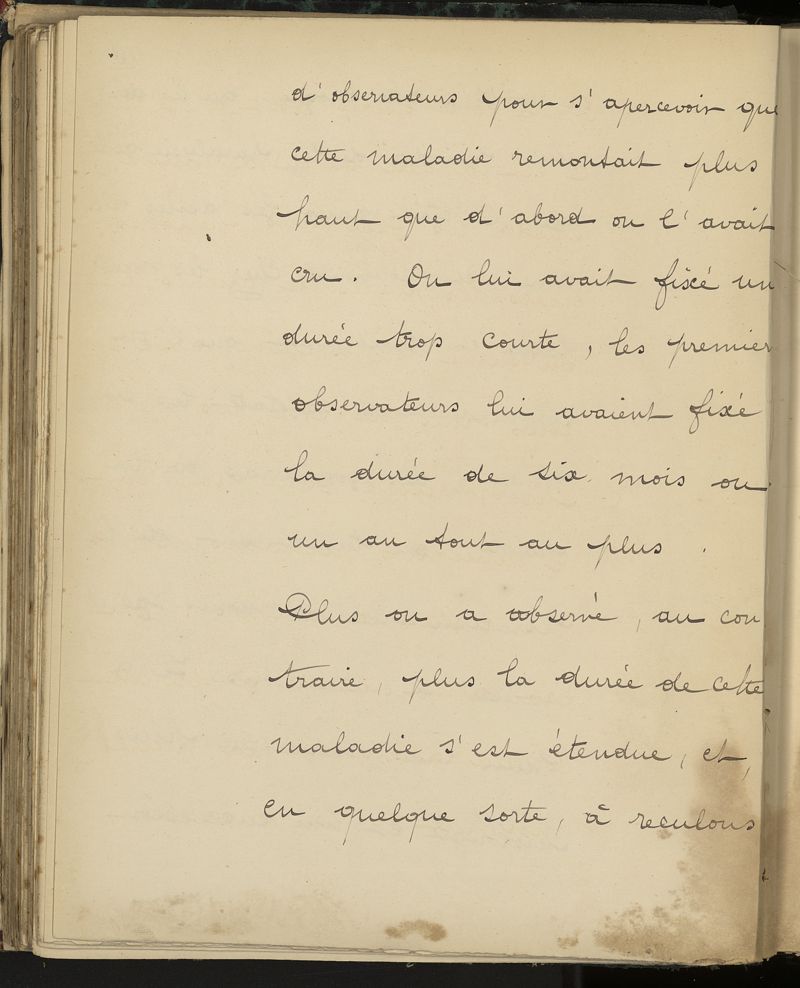 d'observateurs pour s'apercevoir que
cette maladie remontait plus
haut que d'abord on l'avait
cru. On lui avait fixé un
durée trop courte, les premier
observateurs lui avaient fixé
la durée de six mois ou
un an tout au plus.
Plus on a observé, au con
traire, plus la durée de cette
maladie s'est étendue, et,
en quelque sorte, à reculons